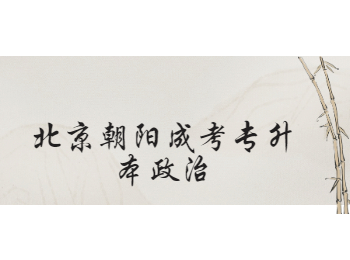 北京朝阳成考专升
本政治